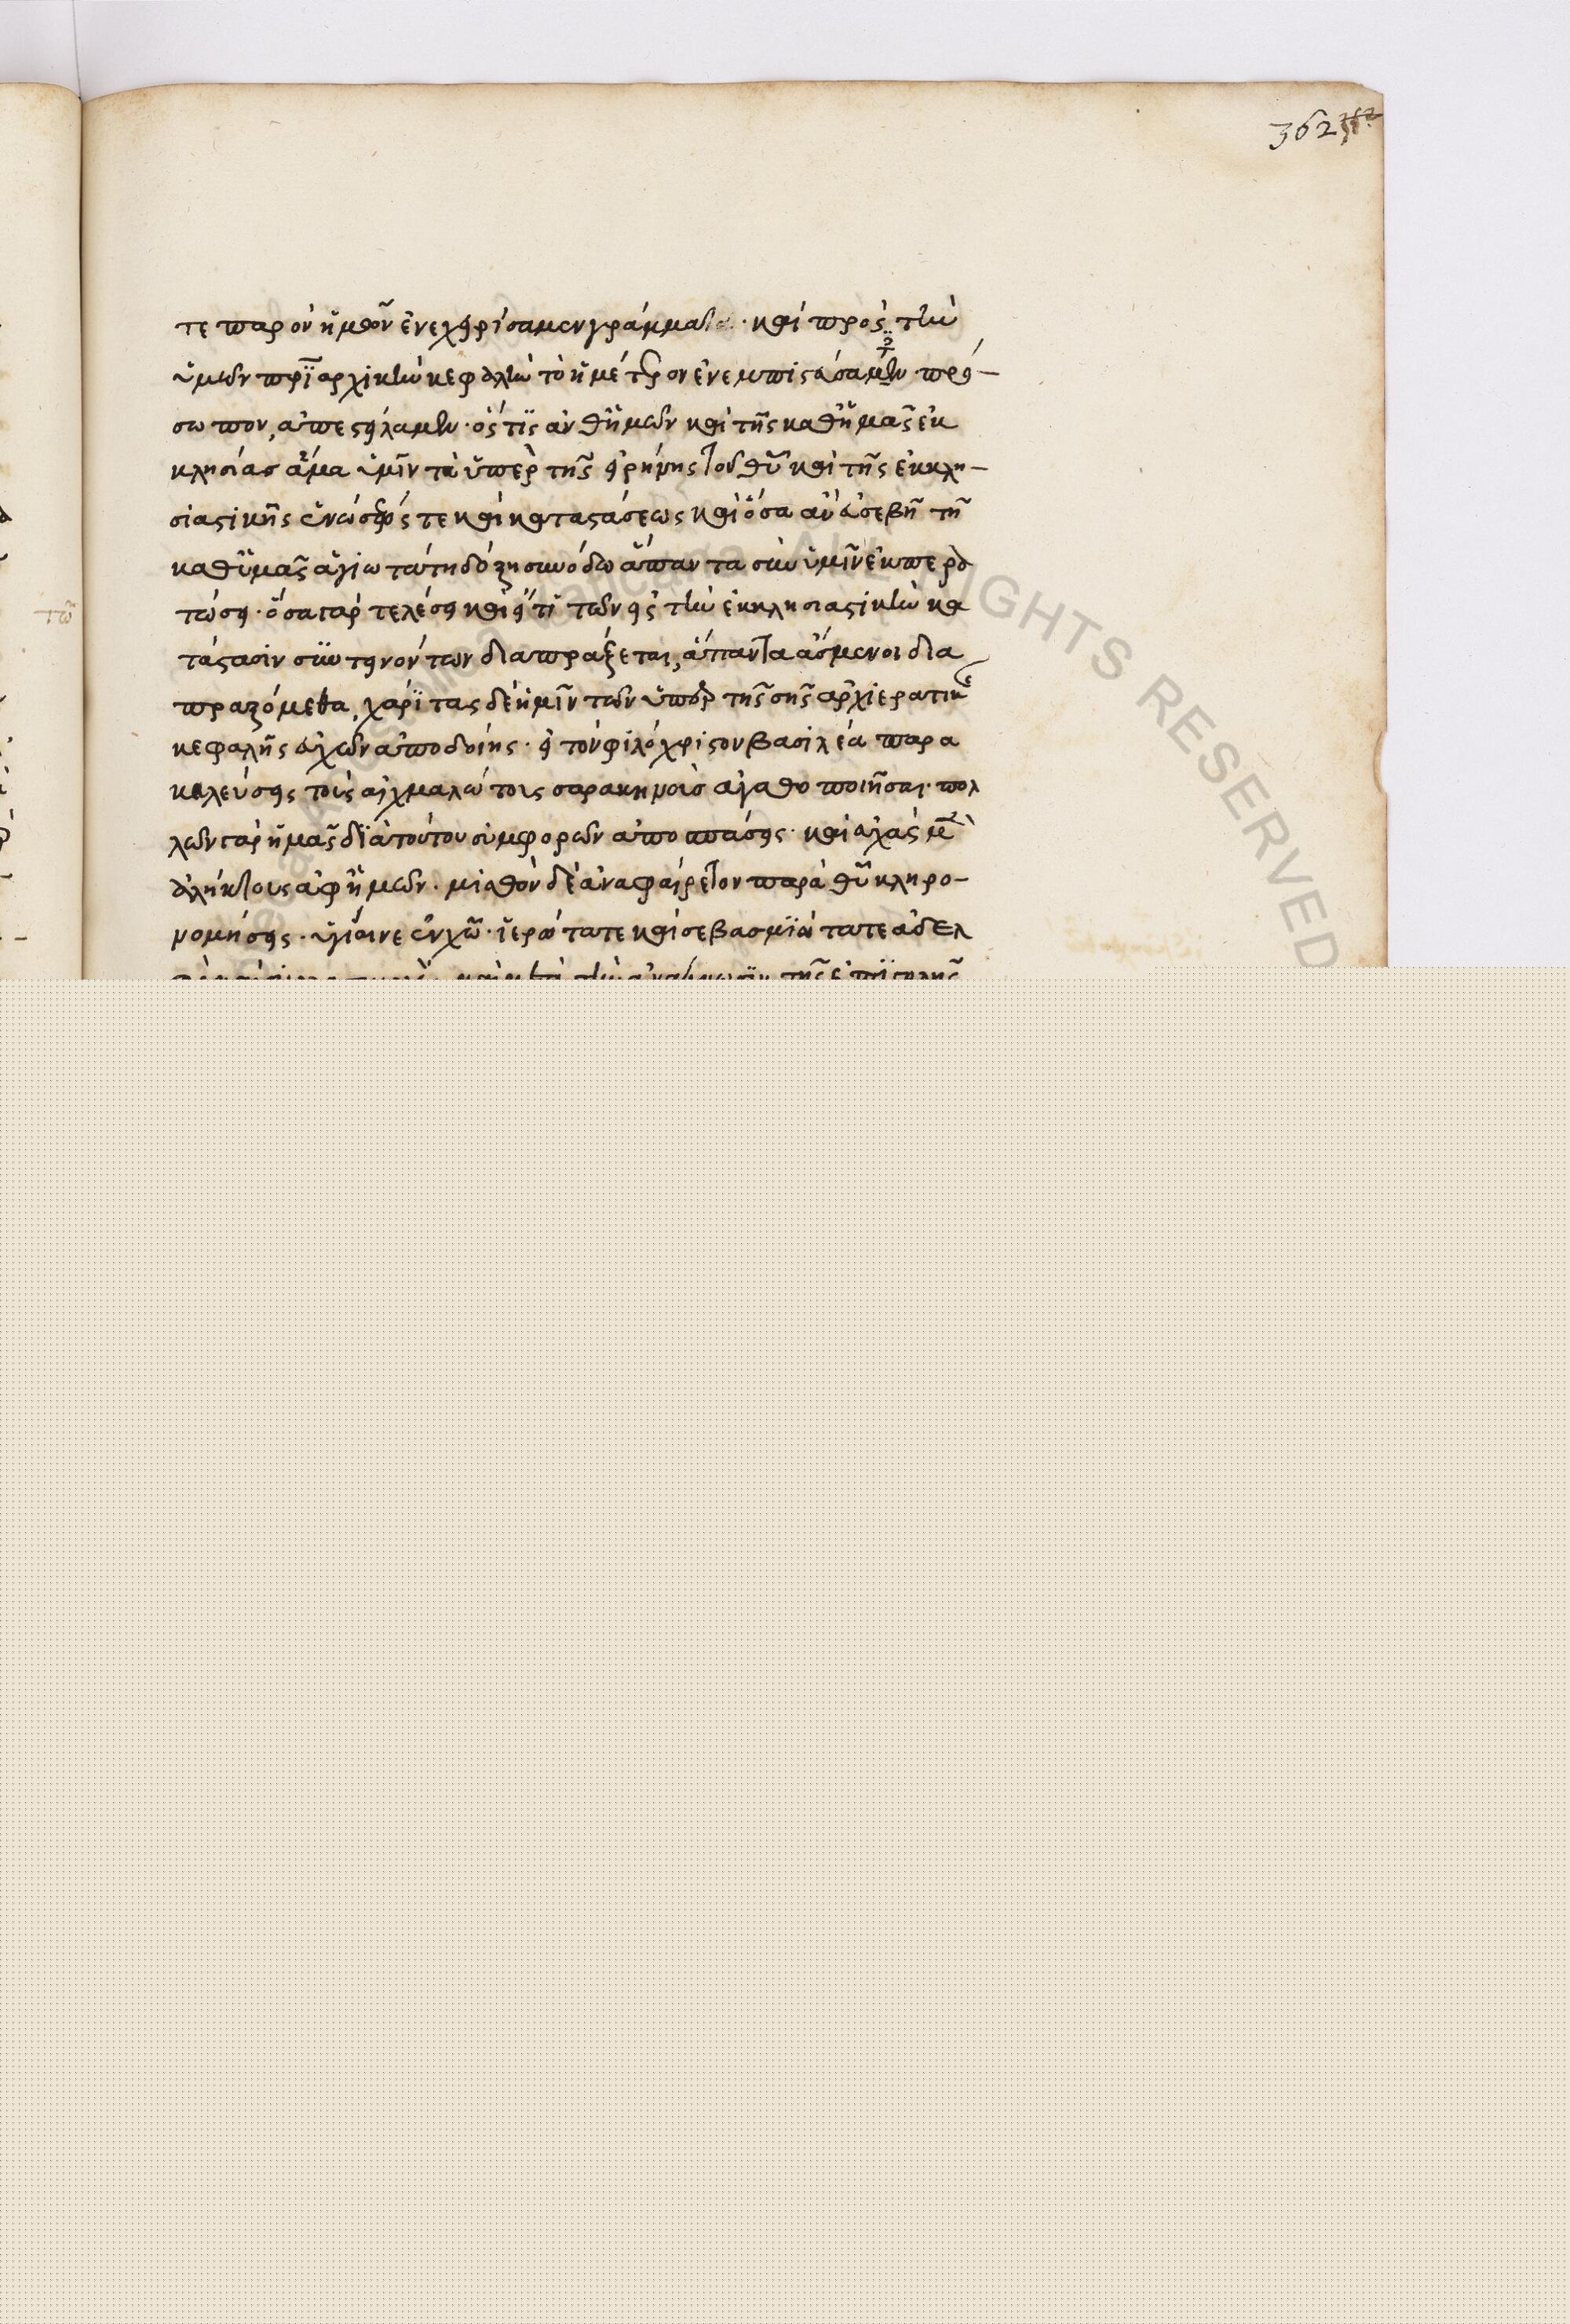 362
τε παρ' ὃν ἡμῶν ἐνεχειρίσαμεν γράμματα· καὶ πρὸς τὴν
ὑμῶν πριαρχικὴν κεφαλὴν τὸ ἡμέτερον ἐνεμπιστευσάμην πρό-
σωπον, ἀπεστείλαμεν· ὅστις ἀνθ' ἡμῶν καὶ τῆς καθ' ἡμᾶς ἐκ
κλησίας ἅμα ὑμῖν τὰ ὑπὲρ τῆς εἰρήνης τοῦ θυ καὶ τῆς ἐκκλη-
σιαστικῆς ἑνώσεώς τε καὶ καταστάσεως καὶ ὅσα ἂν εὐσεβῆ τῇ
καθ' ὑμᾶς ἁγιωτάτῃ δόξῃ συνόδω ἅπαντα σὺν ὑμῖν ἐκπερα
τώσει· ὅσα γὰρ τελέσει καὶ εἴ τι τῶν εἰς τὴν ἐκκλησιαστικὴν κα
τάστασιν συντεινόντων διαπράξεται, ἅπαντα ἄσμενοι δια
πραξόμεθα, χάριτας δὲ ἡμῖν τῶν ὑπὲρ τῆς σῆς ἀρχιερατικῆς
κεφαλῆς εὐχῶν ἀποδοίης· εἰ τὸν φιλόχριστον βασιλέα παρα
κελεύσεις τοὺς αἰχμαλώτοις σαρακηνοῖς ἀγαθοποιῆσαι· πολ
λῶν γὰρ ἡμᾶς διὰ τούτου συμφορῶν ἀποσπάσεις· καὶ εὐχὰς
ἀλήκτους ἀφ' ἡμῶν· μισθὸν δὲ ἀναφαίρετον παρὰ θυ κληρο-
νομήσεις· ὑγίαινε ἐν χω· ἱερώτατε καὶ σεβασμιώτατε ἀδελ
τῶ